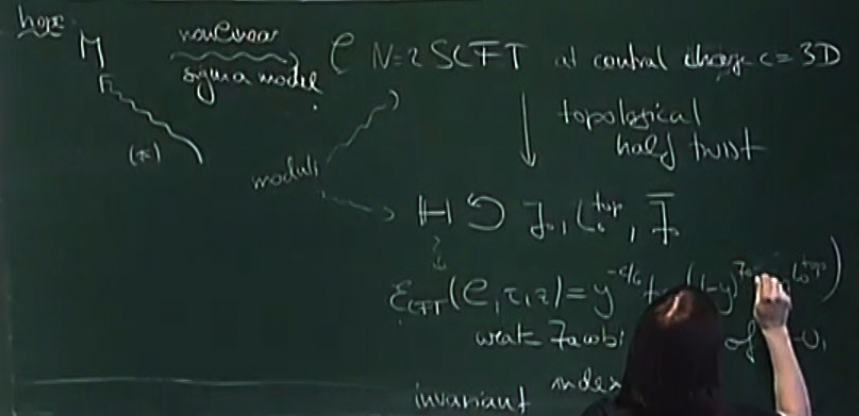 hope:
M nonlinear sigma model C N=2 SCFT at central charge c = 3D
topological
half twist
(*)
moduli
H ↺ J₀, L₀^top, J̄₀
ε_CFT(C, τ, z) = y^{-c/6} (-y)^{J₀ L₀^top})
weak Jacobi of
index
invariant